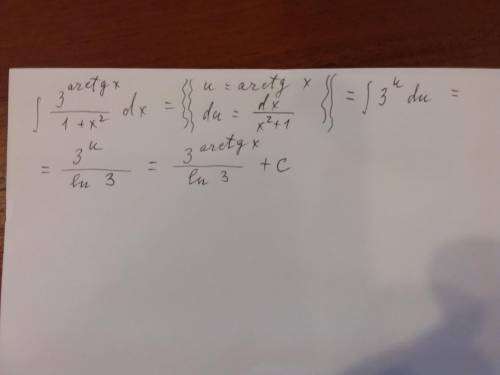 ∫ 3^(arctg x) / (1 + x²) dx = { u = arctg x, du = dx / (x² + 1) } = ∫ 3^u du =
= 3^u / ln 3 = 3^(arctg x) / ln 3 + C